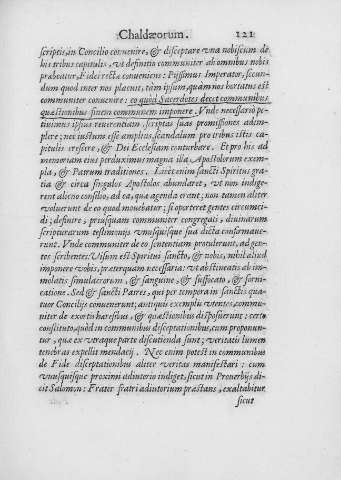 Chaldæorum. 121
scriptis, in Concilio convenire, & disceptare una nobiscum de
his tribus capitulis, ut definitio communiter ab omnibus nobis
præbeatur, Fidei rectæ conveniens: Piissimus Imperator, secun-
dum quod inter nos placuit, tàm ipsum, quàm nos hortatus est
communiter convenire: eo quòd Sacerdotes decet communibus
quæstionibus finem communem imponere. Unde necessariò pe-
tivimus ipsius reverentiam, scriptas suas promissiones adim-
plere; nec iustum esse amplius, scandalum pro tribus istis ca-
pitulis crescere, & Dei Ecclesiam conturbare. Et pro his ad
memoriam eius perduximus magna illa Apostolorum exem-
pla, & Patrum traditiones. Licet enim sancti Spiritus gra-
tia & circa singulos Apostolos abundaret, ut non indige-
rent alieno consilio, ad ea, quæ agenda erant; non tamen aliter
voluerunt de eo quod movebatur; si oporteret gentes circumci-
di; definire, priusquam communiter congregati, divinarum
scripturarum testimonijs unusquisque sua dicta confirmave-
runt. Unde communiter de eo sententiam protulerunt, ad gen-
tes scribentes: Visum est Spiritui sancto, & nobis, nihil aliud
imponere vobis, præterquam necessaria: ut abstineatis ab im-
molatis simulacrorum, & sanguine, & suffocato, & forni-
catione. Sed & sancti Patres, qui per tempora in sanctis qua-
tuor Concilijs convenerunt; antiquis exemplis utentes, commu-
niter de exortis hæresibus, & quæstionibus disposuerunt: certo
constituto, quòd in communibus disceptationibus, cum proponun-
tur, quæ ex utraque parte discutienda sunt; veritatis lumen
tenebras expellit mendacij. Nec enim potest in communibus
de Fide disceptationibus aliter veritas manifestari: cum
unusquisque proximi adiutorio indiget, sicut in Proverbijs di-
cit Salomon: Frater fratri adiutorium præstans, exaltabitur
sicut